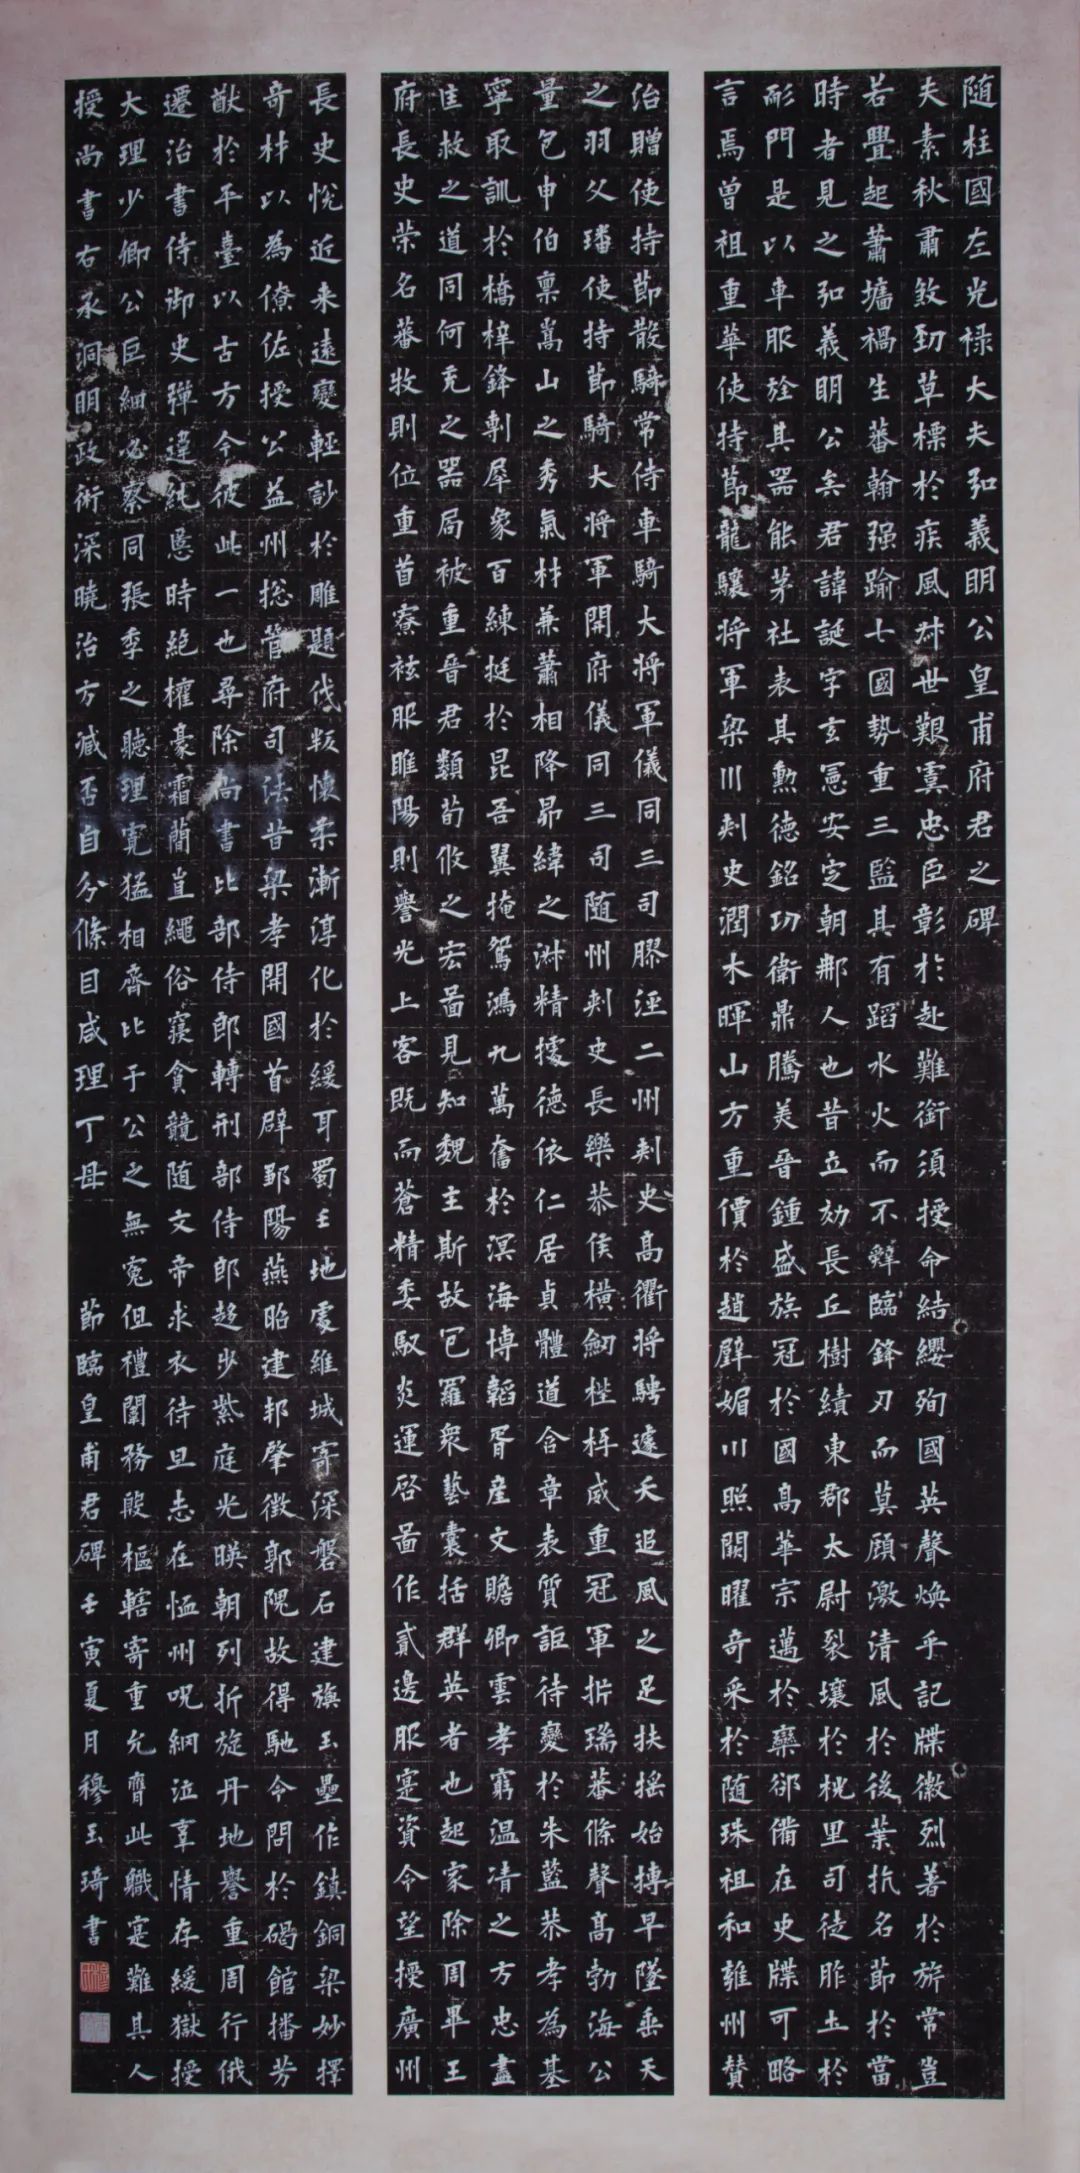 随柱國左光禄大夫弘義明公皇甫府君之碑
夫素秋肅煞勁草標於疾風叔世艱虞忠臣彰於赴難銜須授命結纓殉國英聲煥乎記牒徽烈著於旂常豈
若舋起蕭墻禍生蕃翰强踰七國勢重三監其有蹈水火而不辤臨鋒刃而莫顧激清風於後葉抗名節於當
時者見之弘義明公矣君諱誕字玄憲安定朝那人也昔立効長丘樹績東郡太尉裂壤於桃里司徒胙土於
耏門是以車服旌其器能茅社表其勲德銘功衛鼎騰美晉鍾盛族冠於國高華宗邁於欒郤備在史牒可略
言焉曾祖重華使持節龍驤將軍梁州刺史潤木暉山方重價於趙璧媚川照闕曜奇采於随珠祖和雍州賛
治贈使持節散騎常侍車騎大將軍儀同三司膠涇二州刺史高衢將騁遽夭追風之足扶摇始摶早墜垂天
之羽父璠使持節騎大將軍開府儀同三司随州刺史長樂恭侯横劒桎梏威重冠軍折瑞蕃條聲高勃海公
量包申伯禀嵩山之秀氣材兼蕭相降昴緯之淋精據德依仁居貞體道含章表質詎待變於朱藍恭孝為基
寧取訓於橋梓鋒剸犀象百練挺於昆吾翼掩鴛鴻九萬奮於溟海博韜胥産文贍卿雲孝窮温凊之方忠盡
匡救之道同何充之器局被重晉君類荀攸之宏圖見知魏主斯故包羅衆藝囊括群英者也起家除周畢王
府長史榮名蕃牧則位重首寮袨服睢陽則譽光上客既而蒼精委馭炎運啓圖作貳邊服寔資令望授廣州
長史悦近来遠變輕訬於雕題伐叛懷柔漸淳化於緩耳蜀王地處維城寄深磐石建旟玉壘作鎮銅梁妙擇
奇材以為僚佐授公益州捴管府司法昔梁孝開國首辟鄒陽燕昭建邦肇徵郭隗故得馳令問於碣館播芳
猷於平臺以古方今彼此一也尋除尚書比部侍郎轉刑部侍郎趍步紫庭光暎朝列折旋丹地譽重周行俄
遷治書侍御史彈違糺慝時絶權豪霜簡直繩俗寢貪競随文帝求衣待旦志在恤州呪網泣辜情存緩獄授
大理少卿公巨細必察同張季之聽理寬猛相齊比于公之無寃但禮闈務殷樞轄寄重允膺此職寔難其人
授尚書右丞洞明政術深曉治方臧否自分條目咸理丁母 節臨皇甫君碑壬寅夏月穆玉琦書